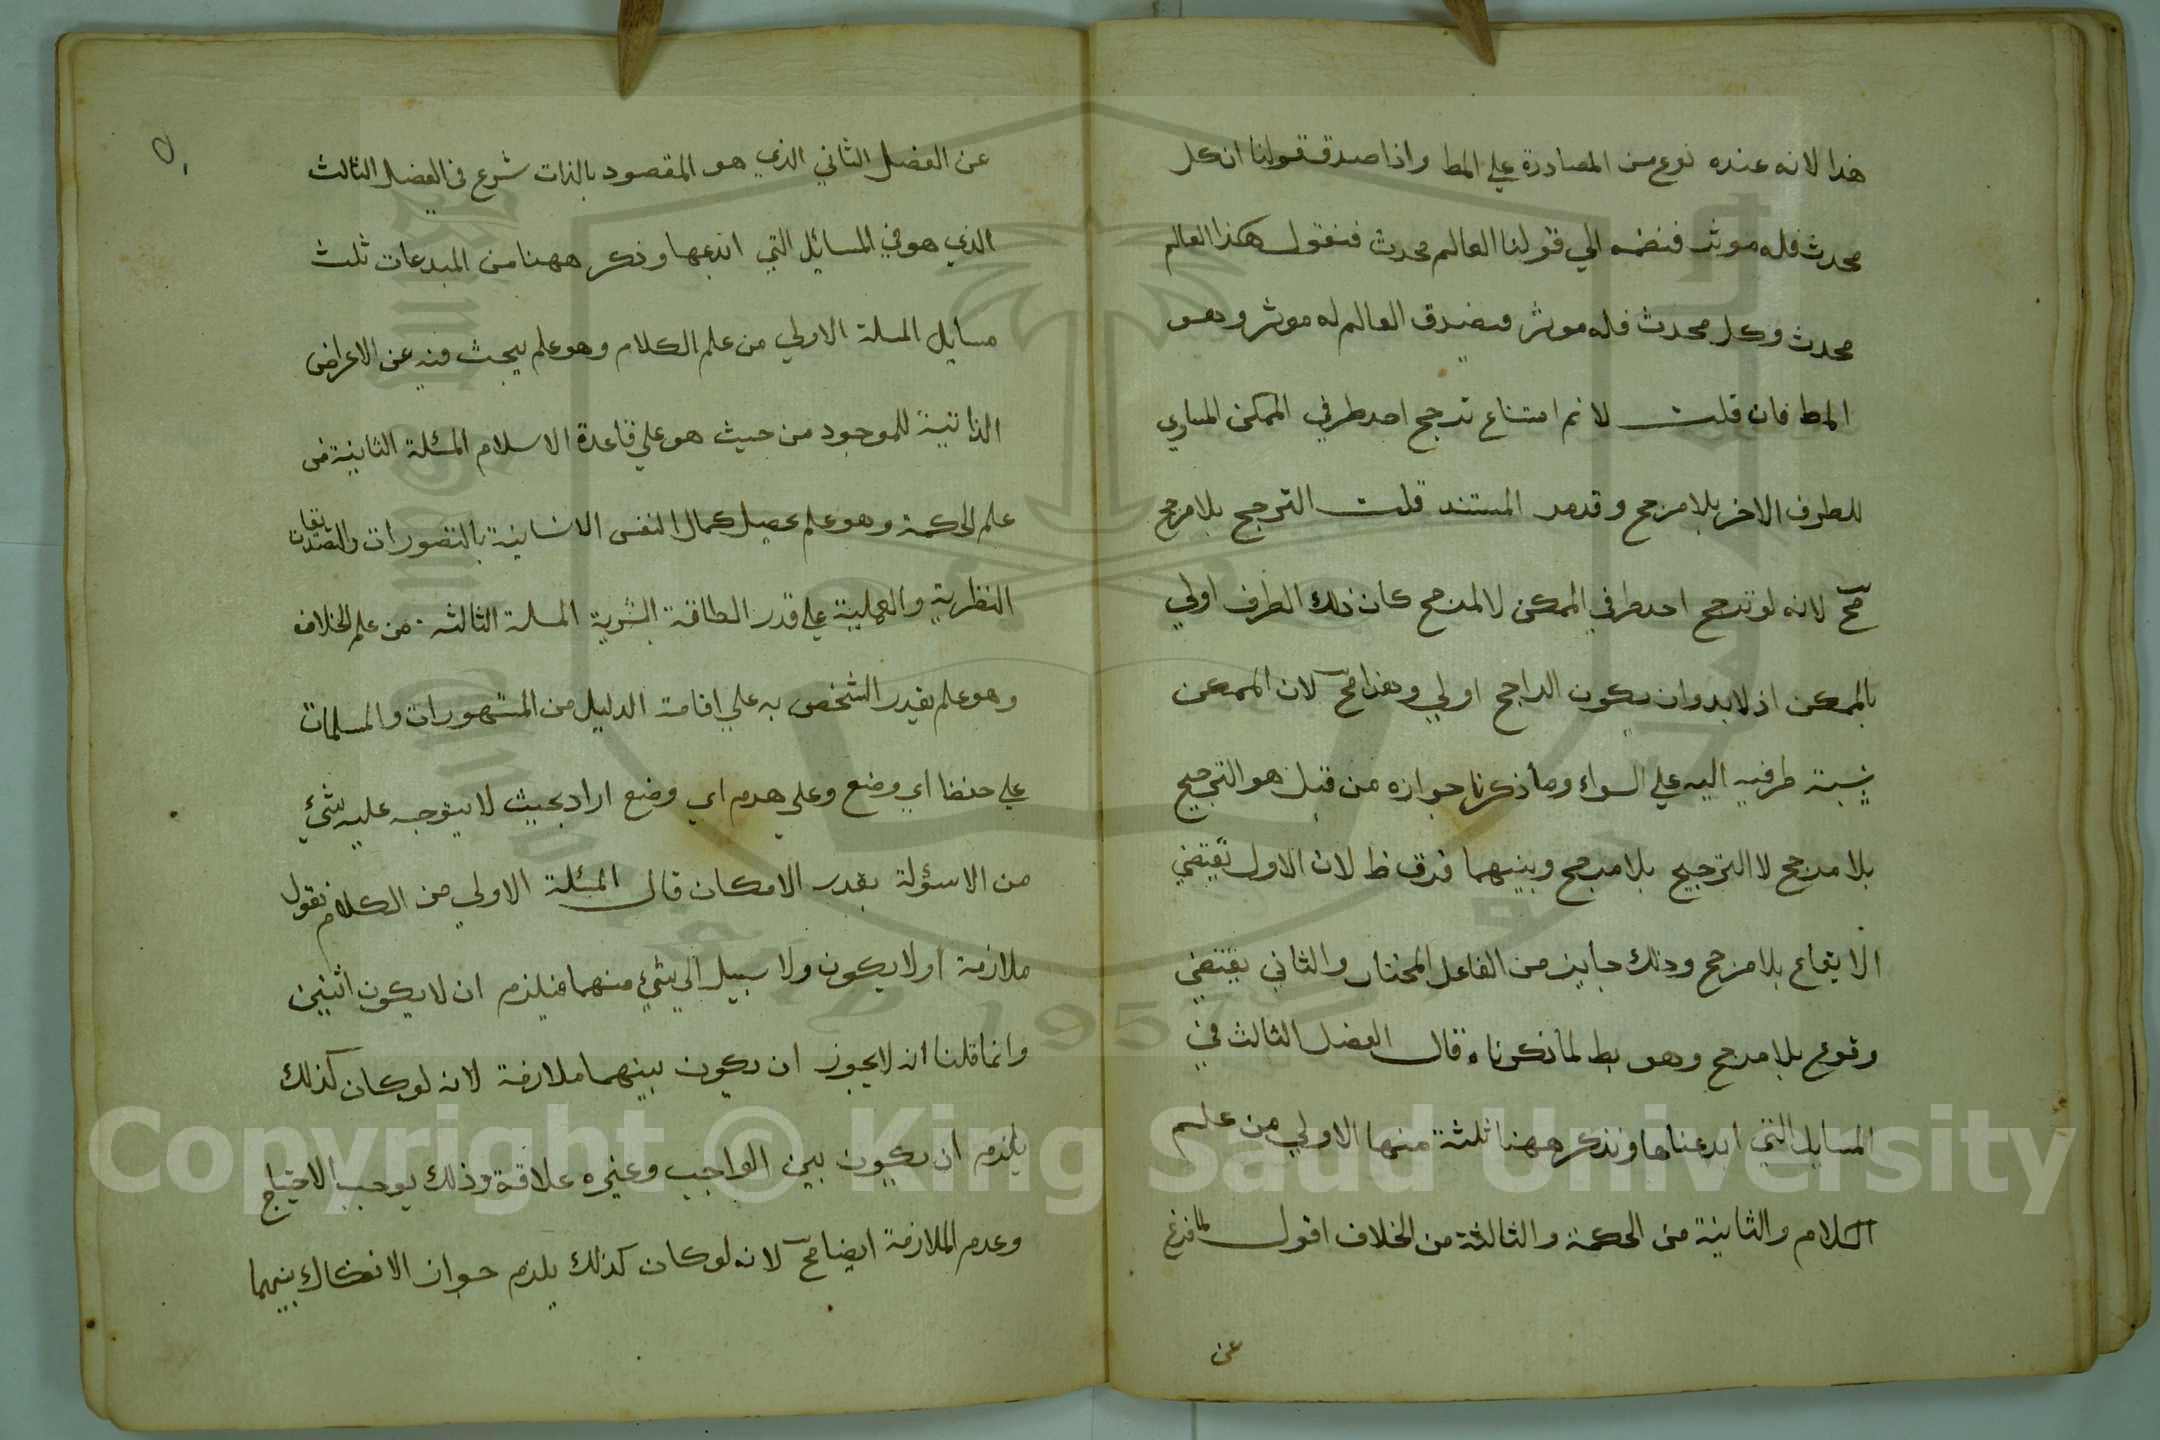 هذا لانه عنده نوع من المصادرة علي المط واذا صدق قولنا ان كل
محدث فله موثر فنضمه الي قولنا العالم محدث فنقول هكذا العالم
محدث وكل محدث فله موثر فيصدق العالم له موثر وهو
المط فان قلت لا نم امتناع ترجح احد طرفي الممكن المساوي
للطرف الاخر بلا مرجح وقد مر المستند قلت الترجح بلا مرجح
مح لانه لو ترجح احد طرفي الممكن لا لمرجح كان ذلك الطرف اولي
بالممكن اذ لابد وان يكون الراجح اولي وهذا مح لان الممكن
نسبة طرفيه اليه علي السواء وما ذكرنا جوازه من قبل هو الترجيح
بلا مرجح لا الترجح بلا مرجح وبينهما فرق ظ لان الاول يقتضي
الايقاع بلا مرجح وذلك جايز من الفاعل المختار والثاني يقتضي
وقوع بلا مرجح وهو بط لما ذكرناه قال الفصل الثالث في
المسايل التي ابدعناها ونذكر ههنا ثلثة منها الاولي من علم
الكلام والثانية من الحكمة والثالثة من الخلاف اقول لما فرغ
عن
عن الفصل الثاني الذي هو المقصود بالذات شرع في الفصل الثالث
الذي هو في المسايل التي ابدعها وذكر ههنا من المبدعات ثلث
مسايل المسلة الاولي من علم الكلام وهو علم يبحث فيه عن الاعراض
الذاتية للموجود من حيث هو علي قاعدة الاسلام المسئلة الثانية من
علم الحكمة وهو علم يحصيل كمال النفس الانسانية بالتصورات والتصديقات
النظرية والعملية علي قدر الطاقة البشرية المسلة الثالثة من علم الخلاف
وهو علم يقدر الشخص به علي اقامة الدليل من المشهورات والمسلمات
علي حفظ اي وضع وعلي هدم اي وضع اراد بحيث لا يتوجه عليه شئ
من الاسؤلة بقدر الامكان قال المسئلة الاولي من الكلام نقول
ملازمة او لا يكون ولا سبيل الي شئ منهما فيلزم ان لا يكون اثنين
وانما قلنا انه لا يجوز ان يكون بينهما ملازمة لانه لو كان كذلك
يلزم ان يكون بين الواجب وغيره علاقة وذلك يوجب الاحتياج
وعدم الملازمة ايضا مح لانه لو كان كذلك يلزم جواز الانفكاك بينهما
Copyright © King Saud University
1957